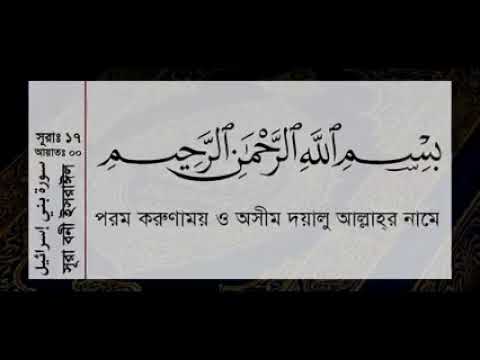 সূরাঃ ১৭
আয়াতঃ ০০
سورة بني إسرائيل
সূরা বনী ইসরাঈল
بِسْمِ اللَّهِ الرَّحْمَٰنِ الرَّحِيمِ
পরম করুণাময় ও অসীম দয়ালু আল্লাহ্‌র নামে